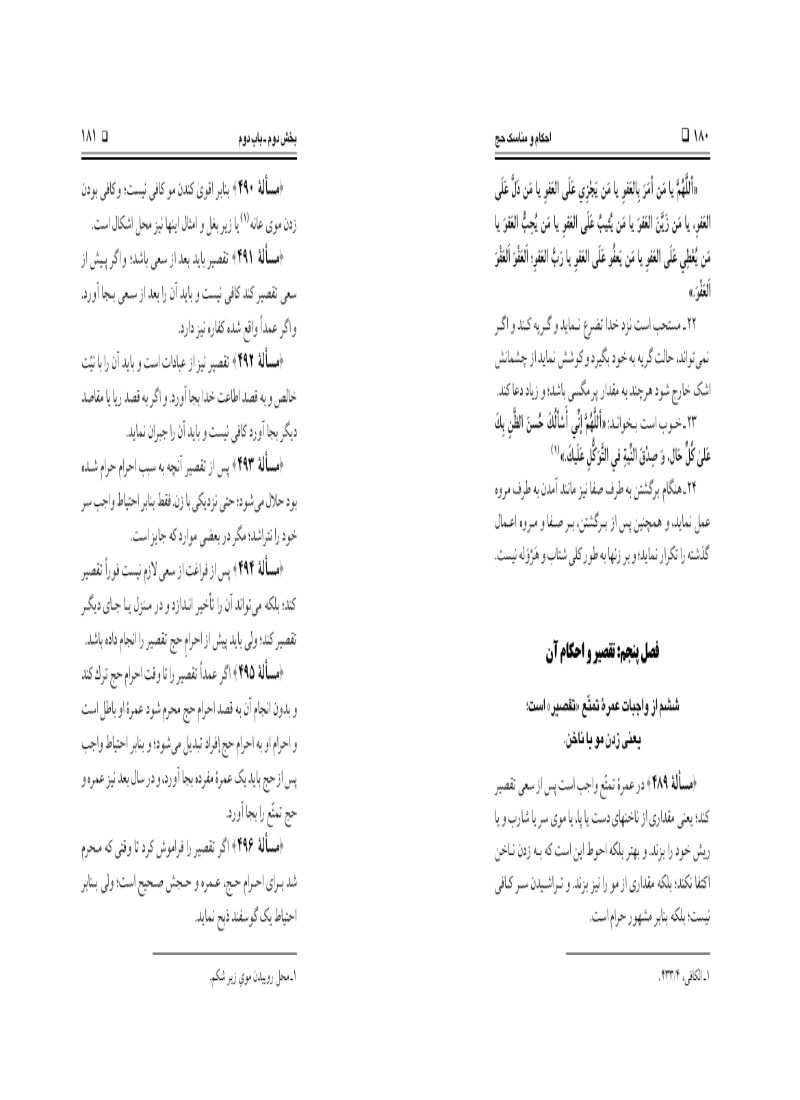 ۱۸۰ ❑ احکام و مناسک حج
«أَللّٰهُمَّ يا مَن أمَرَ بِالعَفوِ يا مَن يَجْزِي عَلَى العَفوِ يا مَن دَلَّ عَلَى
العَفوِ، يا مَن زَيَّنَ العَفوَ يا مَن يُثيبُ عَلَى العَفوِ يا مَن يُحِبُّ العَفوَ يا
مَن يُعْطِي عَلَى العَفوِ يا مَن يَعفُو عَلَى العَفوِ يا رَبَّ العَفوِ؛ اَلعَفْوَ اَلعَفْوَ
اَلعَفْوَ.»
۲۲ـ مستحب است نزد خدا تضرع نماید و گریه کند و اگر
نمی‌تواند، حالت گریه به خود بگیرد و کوشش نماید از چشمانش
اشک خارج شود هرچند به مقدار پر مگسی باشد؛ و زیاد دعا کند.
۲۳ـ خوب است بخواند: «أَللّٰهُمَّ إنّي أَسألُكَ حُسنَ الظَّنِ بِكَ
عَلىٰ كُلِّ حَالٍ، وَ صِدْقَ النِّيةِ فِي التَّوَكُّلِ عَلَيكَ.»(۱)
۲۴ـ هنگام برگشتن به طرف صفا نیز مانند آمدن به طرف مروه
عمل نماید، و همچنین پس از برگشتن، بر صفا و مروه اعمال
گذشته را تکرار نماید؛ و بر زنها به طور کلی شتاب و هَرْوَله نیست.
فصل پنجم: تقصیر و احکام آن
ششم از واجبات عمرهٔ تمتّع «تقصیر» است؛
یعنی زدن مو یا ناخن.
﴿مسألهٔ ۴۸۹﴾ در عمرهٔ تمتّع واجب است پس از سعی تقصیر
کند؛ یعنی مقداری از ناخنهای دست یا پا، یا موی سر یا شارب و یا
ریش خود را بزند. و بهتر بلکه احوط این است که به زدن ناخن
اکتفا نکند؛ بلکه مقداری از مو را نیز بزند. و تراشیدن سر کافی
نیست؛ بلکه بنابر مشهور حرام است.
۱ـ الکافی، ۴۳۳/۴.
بخش دوم ـ باب دوم ❑ ۱۸۱
﴿مسألهٔ ۴۹۰﴾ بنابر اقویٰ کندن مو کافی نیست؛ و کافی بودن
زدن موی عانه(۱) یا زیر بغل و امثال اینها نیز محل اشکال است.
﴿مسألهٔ ۴۹۱﴾ تقصیر باید بعد از سعی باشد؛ و اگر پیش از
سعی تقصیر کند کافی نیست و باید آن را بعد از سعی بجا آورد.
و اگر عمداً واقع شده کفاره نیز دارد.
﴿مسألهٔ ۴۹۲﴾ تقصیر نیز از عبادات است و باید آن را با نیّت
خالص و به قصد اطاعت خدا بجا آورد. و اگر به قصد ریا یا مقاصد
دیگر بجا آورد کافی نیست و باید آن را جبران نماید.
﴿مسألهٔ ۴۹۳﴾ پس از تقصیر آنچه به سبب احرام حرام شده
بود حلال می‌شود؛ حتی نزدیکی با زن. فقط بنابر احتیاط واجب سر
خود را نتراشد؛ مگر در بعضی موارد که جایز است.
﴿مسألهٔ ۴۹۴﴾ پس از فراغت از سعی لازم نیست فوراً تقصیر
کند؛ بلکه می‌تواند آن را تأخیر اندازد و در منزل یا جای دیگر
تقصیر کند؛ ولی باید پیش از احرام حج تقصیر را انجام داده باشد.
﴿مسألهٔ ۴۹۵﴾ اگر عمداً تقصیر را تا وقت احرام حج ترك کند
و بدون انجام آن به قصد احرام حج محرم شود عمرهٔ او باطل است
و احرام او به احرام حج إفراد تبدیل می‌شود؛ و بنابر احتیاط واجب
پس از حج باید یک عمرهٔ مفرده بجا آورد، و در سال بعد نیز عمره و
حج تمتّع را بجا آورد.
﴿مسألهٔ ۴۹۶﴾ اگر تقصیر را فراموش کرد تا وقتی که محرم
شد برای احرام حج، عمره و حجش صحیح است؛ ولی بنابر
احتیاط یک گوسفند ذبح نماید.
۱ـ محل روییدن موی زیر شکم.